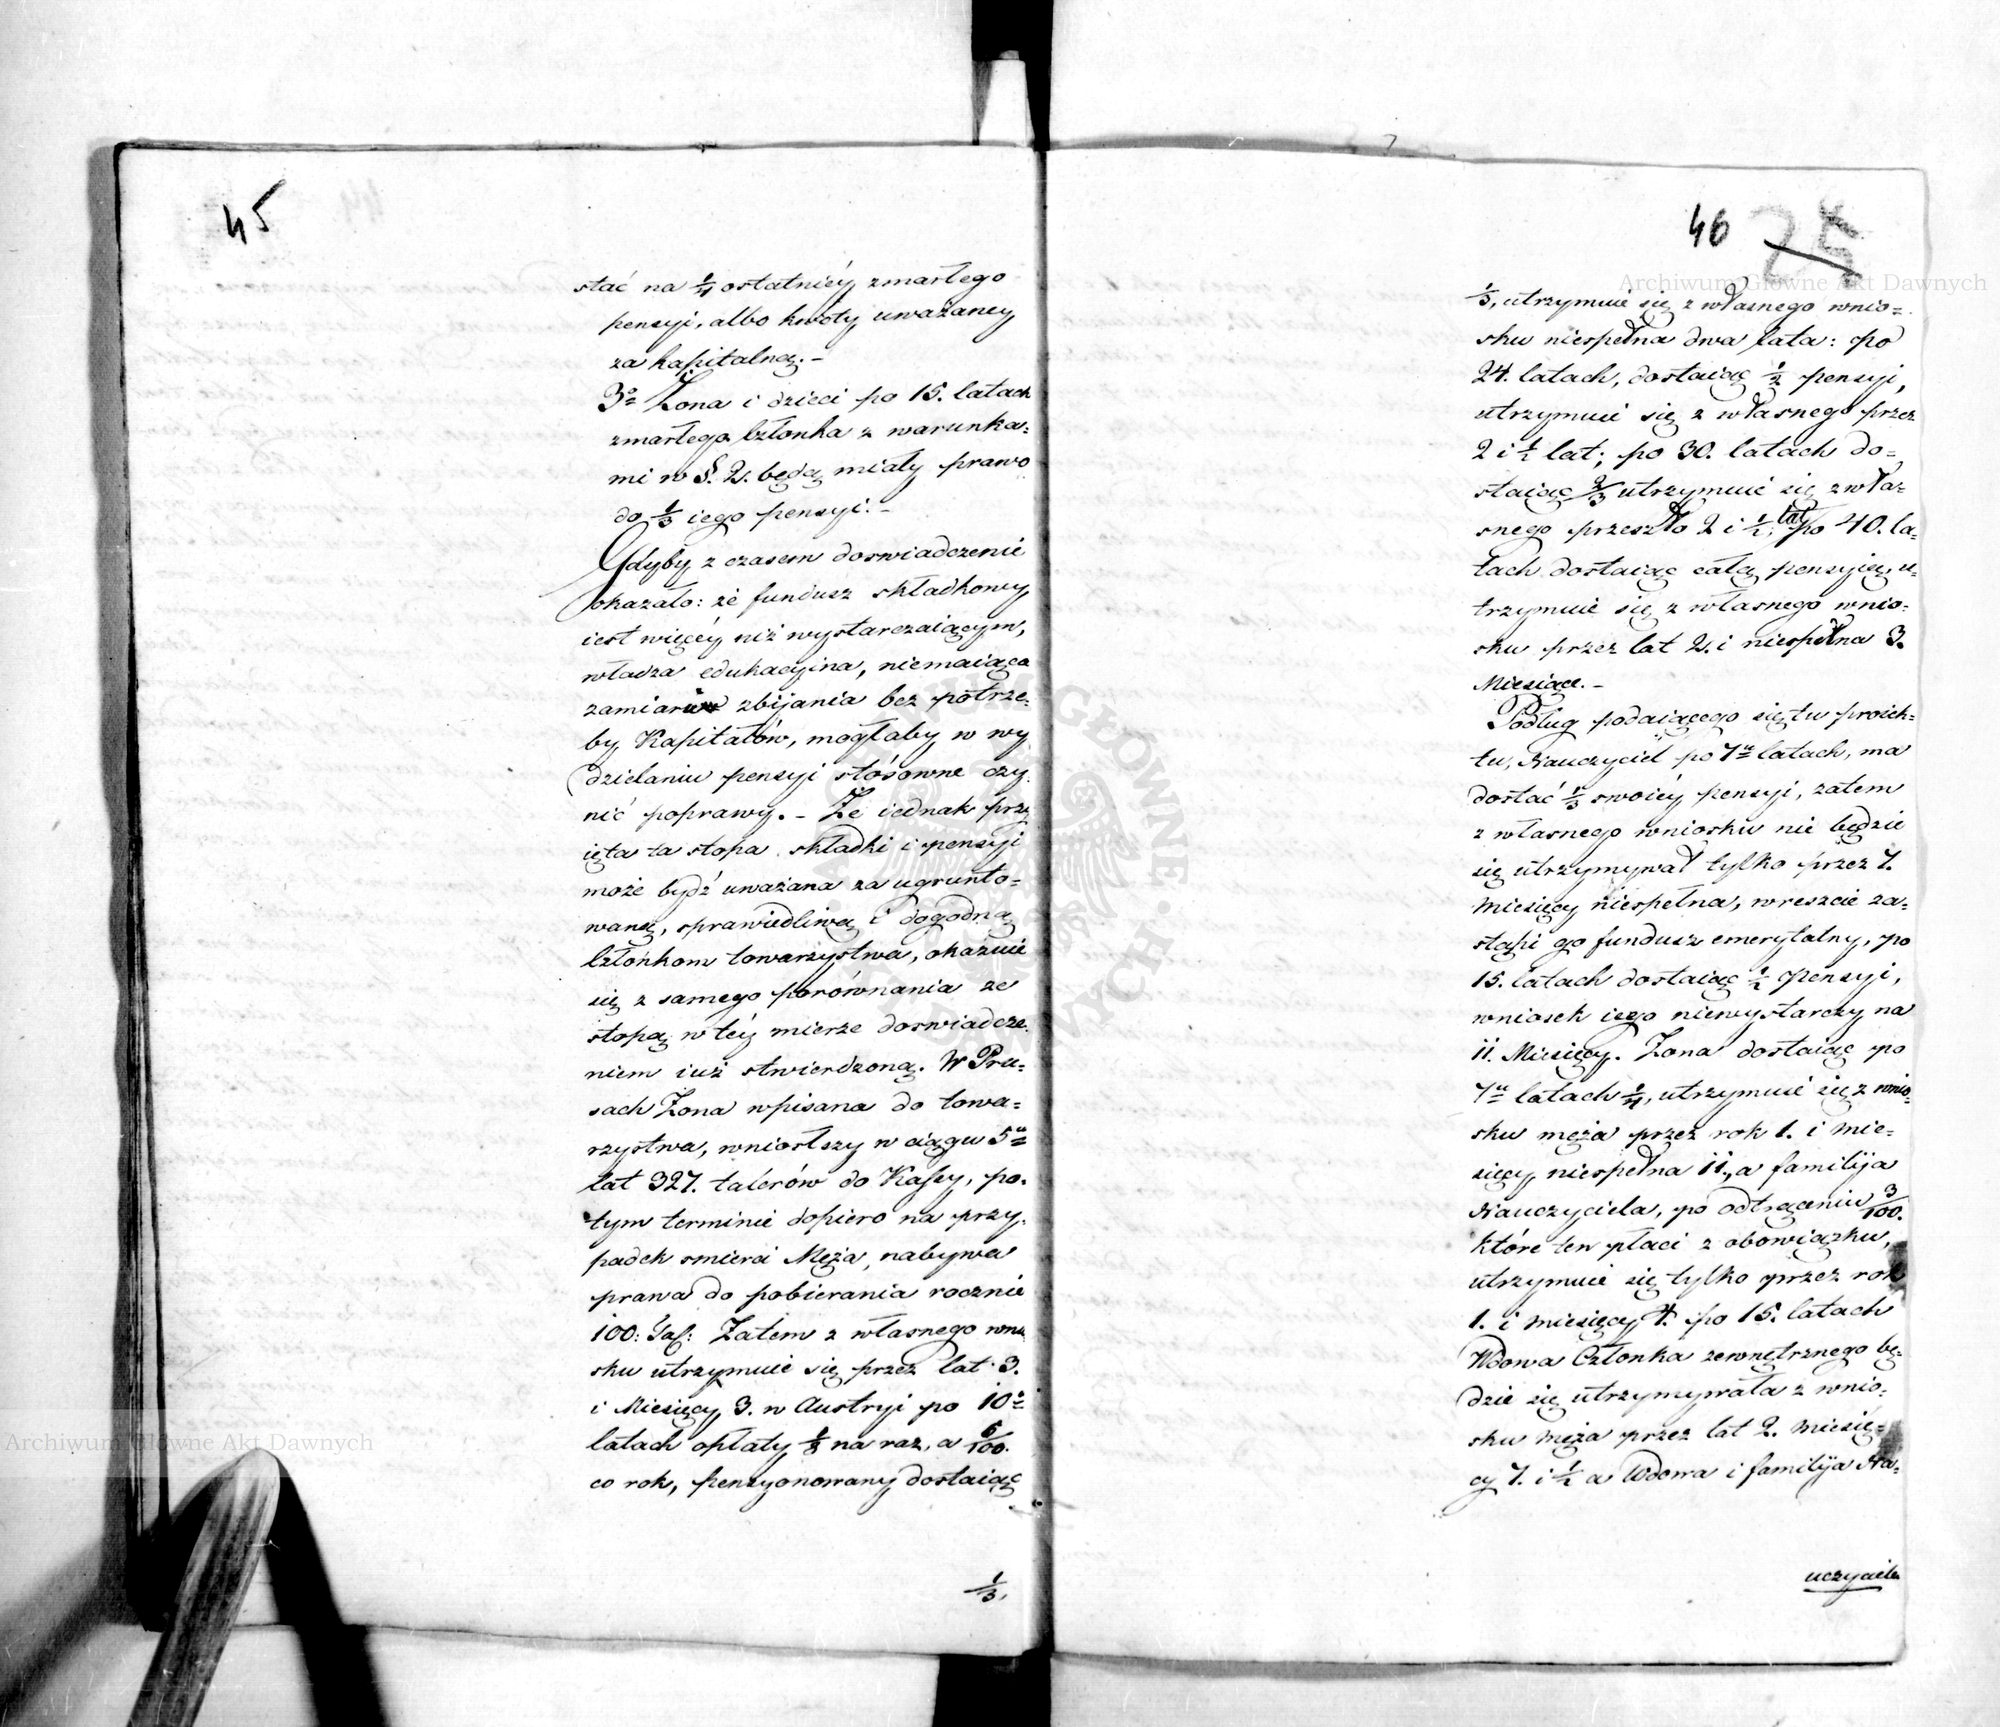 45
stać na 1/4 ostatniéy zmarłego
pensyi, albo kwoty uważaney
za kapitalną. –
3o Zona i dzieci po 15. latach
zmarłego Członka z warunka=
mi w §. 2. będą miały prawo
do 1/3 iego pensyi. –
Gdyby z czasem doswiadczenie
okazało: że fundusz składkowy
iest więcéy niż wystarczaiącym,
władza edukacyina, niemaiąca
zamiarów zbijania bez potrze=
by Kapitałów, mogłaby w wy
dzielaniu pensyi stósowne czy
nić poprawy. – Ze iednak przy
ięta ta stopa składki i pensyi
może bydź uważana za ugrunto=
waną, sprawiedliwą i dogodną
Członkom towarzystwa, okazuie
się z samego porównania ze
stopą w téy mierze doswiadcze
niem iuż stwierdzoną. W Pru=
sach Zona wpisana do towa=
rzystwa, wniosłszy w ciągu 5u
lat 327. talerów do Kassy, po.
tym terminie dopiero na przy.
padek smierci Męża, nabywa
prawa do pobierania rocznie
100: Tal: Zatem z własnego wnio
sku utrzymuie się przez lat 3.
i Miesięcy 3. w Austryi po 10u
latach opłaty 1/8 na raz, a 6/100.
co rok, pensyonowany dostaiąc
1/3,
46 25
1/3, utrzymuie się z własnego wnio=
sku niespełna dwa lata: po
24. latach, dostaiąc 1/2 pensyi,
utrzymuie się z własnego przez
2 i 1/2 lat; po 30. latach do=
staiąc 2/3 utrzymuie się z wła=
snego przeszło 2 i 1/2 lat, po 40. la=
tach dostaiąc całą pensyią, u=
trzymuie się z własnego wnio=
sku przez lat 2. i niespełna 3.
Miesiące. –
Podług podaiącego się tu proiek=
tu, Nauczyciel po 7u latach, ma
dostać 1/3 swoiéy pensyi, zatem
z własnego wniosku nie będzie
się utrzymywał tylko przez 7.
Miesięcy niespełna, wreszcie za=
stąpi go fundusz emerytalny, po
15. latach dostaiąc 1/2 pensyi,
wniosek iego niewystarczy na
11. Miesięcy. Zona dostaiąc po
7u latach 1/4, utrzymuie się z wnio=
sku męża przez rok 1. i mie=
sięcy niespełna 11., a familija
Nauczyciela, po odtrąceniu 3/100.
które ten płaci z obowiązku,
utrzymuie się tylko przez rok
1. i miesięcy 4. po 15. latach
Wdowa Członka zewnętrznego bę=
dzie się utrzymywała z wnio=
sku męża przez lat 2. miesię=
cy 7. i 1/2 a Wdowa i familija Na=
uczyciela
Archiwum Główne Akt Dawnych
Archiwum Główne Akt Dawnych